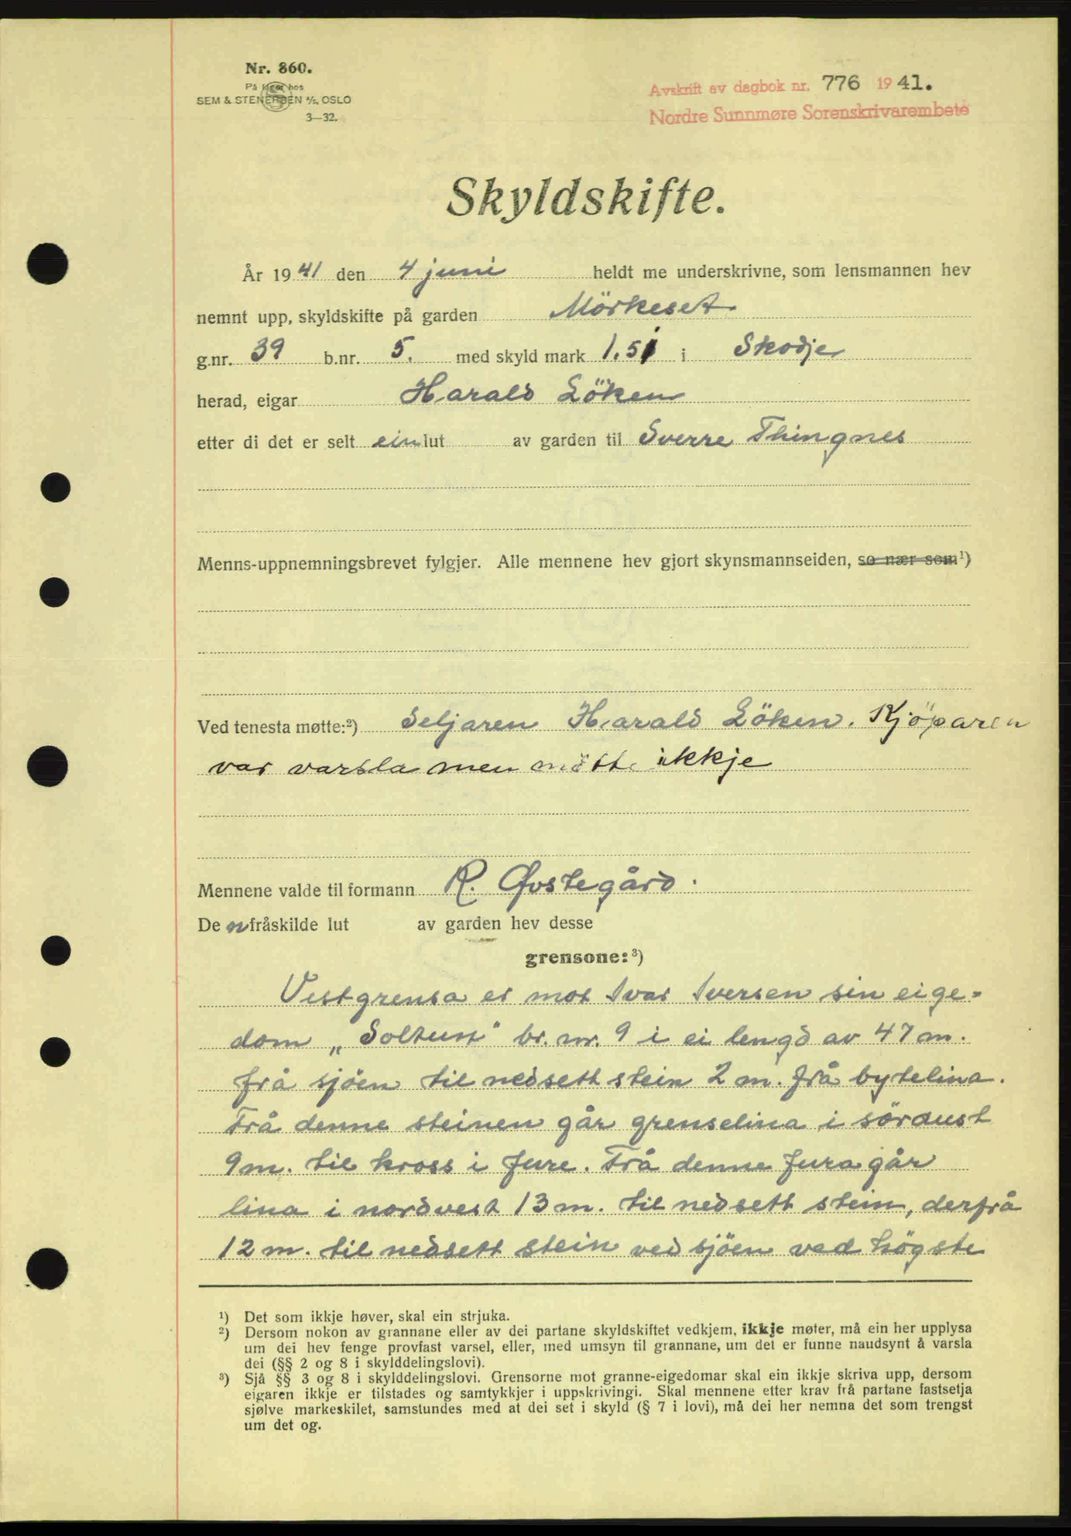 Nr. 860.
På lager hos
SEM & STENERSEN A/S, OSLO
3—32.
Avskrift av dagbok nr. 776 1941.
Nordre Sunnmøre Sorenskrivarembete
Skyldskifte.
År 1941 den 4 juni heldt me underskrivne, som lensmannen hev
nemnt upp, skyldskifte på garden Mörkeset
g.nr. 39 b.nr. 5. med skyld mark 1.51 i Skodje
herad, eigar Harald Löken
etter di det er selt ein lut av garden til Sverre Thingnes
Menns-uppnemningsbrevet fylgjer. Alle mennene hev gjort skynsmannseiden, so nær som ¹)
Ved tenesta møtte:²) Seljaren Harald Löken. Kjöparen
var varsla men mötte ikkje
Mennene valde til formann R. Øvstegård.
Den fråskilde lut av garden hev desse
grensone:³)
Vestgrensa er mot Ivar Iversen sin eige=
dom „Soltun" br. nr. 9 i ei lengd av 47 m.
frå sjöen til nedsett stein 2 m. frå bytelina.
Frå denne steinen går grenselina i söraust
9 m. til kross i fure. Frå denne fura går
lina i nordvest 13 m. til nedsett stein, derfrå
12 m. til nedsett stein ved sjöen ved högste
¹) Det som ikkje høver, skal ein strjuka.
²) Dersom nokon av grannane eller av dei partane skyldskiftet vedkjem, ikkje møter, må ein her upplysa
um dei hev fenge provfast varsel, eller, med umsyn til grannane, um det er funne naudsynt å varsla
dei (§§ 2 og 8 i skylddelingslovi).
³) Sjå §§ 3 og 8 i skylddelingslovi. Grensorne mot granne-eigedomar skal ein ikkje skriva upp, dersom
eigaren ikkje er tilstades og samtykkjer i uppskrivingi. Skal mennene etter krav frå partane fastsetja
sjølve markeskilet, samstundes med at dei set i skyld (§ 7 i lovi), må dei her nemna det som trengst
um det og.